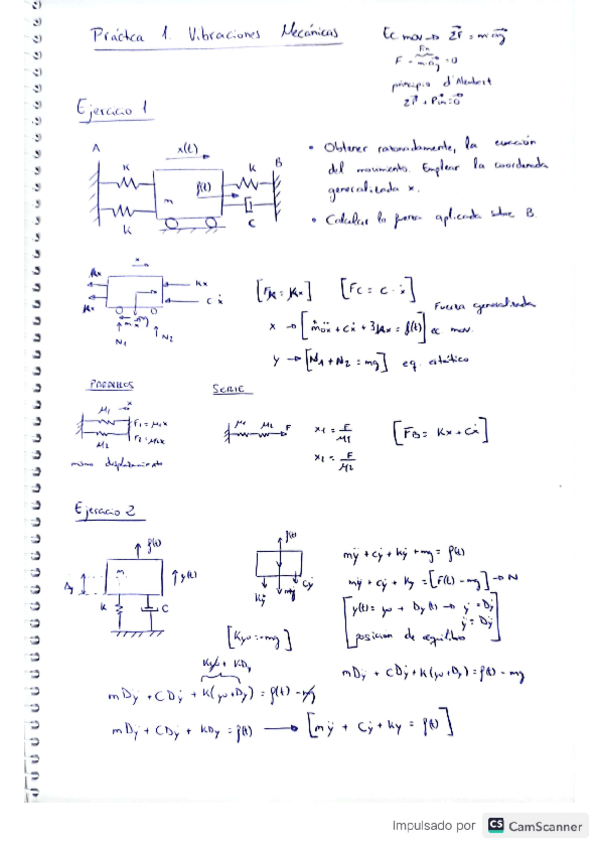 Práctica 1. Vibraciones Mecánicas
Ec mov → ΣF = m·ag
F - m·ag = 0
Fin
principio d'Alembert
ΣF + Fin = 0
Ejercicio 1
A
x(t)
K
K
B
f(t)
m
K
C
• Obtener razonadamente, la ecuación
del movimiento. Emplear la coordenada
generalizada x.
• Calcular la fuerza aplicada sobre B.
Kx
Kx
Kx
cẋ
N1
N2
[Fk = Kx] [Fc = c·ẋ]
Fuerza generalizada
x → [mẍ + cẋ + 3Kx = f(t)] ec mov.
y → [N1 + N2 = mg] eq. estático
PARALELOS
SERIE
μ1
x
F1 = μ1x
F2 = μ2x
μ2
mismo desplazamiento
μ1 μ2 F
x1 = F/μ1
x2 = F/μ2
[FB = Kx + Cẋ]
Ejercicio 2
f(t)
m
y(t)
K
C
f(t)
Ky
mg
Cẏ
mÿ + cẏ + Ky + mg = f(t)
mÿ + cẏ + Ky = [f(t) - mg] → N
y(t) = yo + Dy(t) → ẏ = Dẏ
ÿ = Dÿ
posicion de equilibrio
[Kyo = -mg]
Kyo + KDy
mDÿ + CDẏ + K(yo + Dy) = f(t) - mg
mDÿ + CDẏ + K(yo + Dy) = f(t) - mg
mDÿ + CDẏ + KDy = f(t) → [mÿ + Cẏ + Ky = f(t)]
Impulsado por CS CamScanner